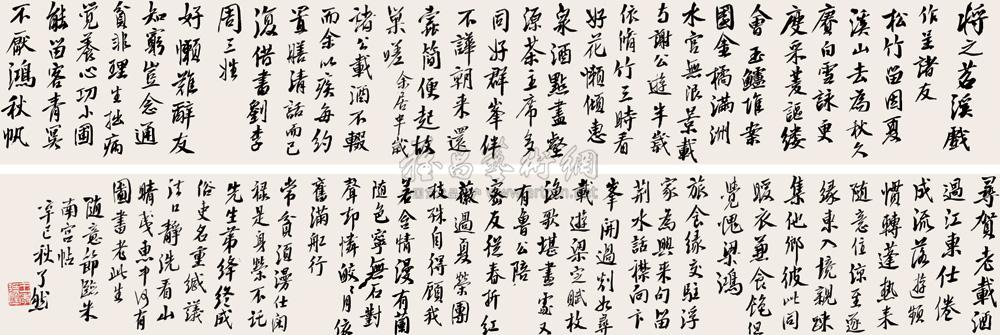 将之苕溪戲
作呈諸友
松竹留因夏
溪山去為秋久
賡白雪詠更
度采菱謳縷
會玉鱸堆案
團金橘滿洲
水宮無限景載
与謝公遊半歲
依脩竹三時看
好花懶傾惠
泉酒點盡壑
源茶主席多
同好群峯伴
不譁朝来還
蠹簡便起故
巢嗟余居半歲
諸公載酒不輟
而余以疾每約
置膳清話而已
復借書劉李
周三姓
好懶難辭友
知窮豈念通
貧非理生拙病
覺養心功小圃
能留客青冥
不厭鴻秋帆
尋賀老載酒
過江東仕倦
成流落遊頻
慣轉蓬熱来
随意住凉至逐
緣東入境親踈
集他鄉彼此同
暖衣兼食飽但
覺愧梁鴻
旅食緣交駐浮
家為興来句留
荆水話襟向卞
峯開過剡如尋
載遊梁定賦枚
漁歌堪畫處又
有魯公陪
密友從春折紅
薇過夏榮團
枝殊自得顧我
若含情漫有蘭
随色寧無石對
聲却憐皎々月依
舊滿舡行
常貧須漫仕閑
禄是身榮不託
先生第終感
俗史名重緘議
法口静洗看山
晴魚中有
圖書老此生
随意節臨米
南宮帖
辛巳秋了然